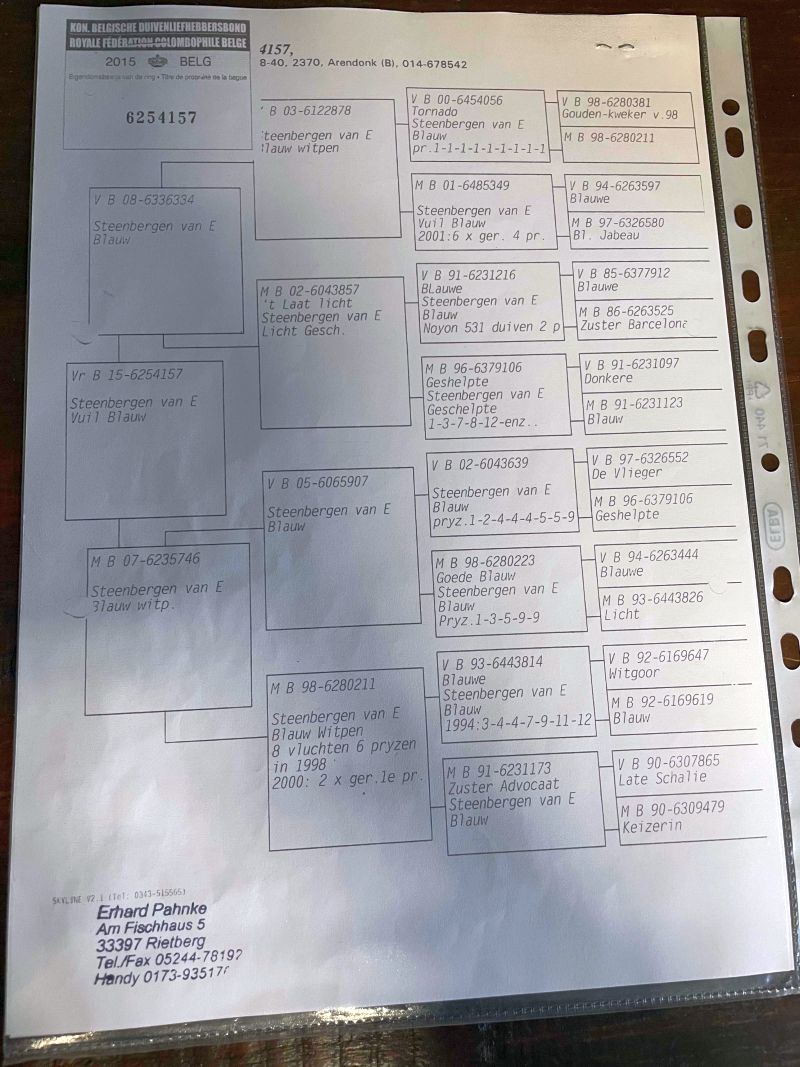 KON. BELGISCHE DUIVENLIEFHEBBERSBOND
ROYALE FÉDÉRATION COLOMBOPHILE BELGE
2015 BELG
Eigendomsbewijs van de ring • Titre de propriété de la bague
6254157
4157,
8-40, 2370, Arendonk (B), 014-678542
V B 08-6336334
Steenbergen van E
Blauw
Vr B 15-6254157
Steenbergen van E
Vuil Blauw
M B 07-6235746
Steenbergen van E
Blauw witp.
B 03-6122878
teenbergen van E
lauw witpen
M B 02-6043857
't Laat licht
Steenbergen van E
Licht Gesch.
V B 05-6065907
Steenbergen van E
Blauw
M B 98-6280211
Steenbergen van E
Blauw Witpen
8 vluchten 6 pryzen
in 1998
2000: 2 x ger.1e pr.
V B 00-6454056
Tornado
Steenbergen van E
Blauw
pr.1-1-1-1-1-1-1-1-1
M B 01-6485349
Steenbergen van E
Vuil Blauw
2001:6 x ger. 4 pr.
V B 91-6231216
BLauwe
Steenbergen van E
Blauw
Noyon 531 duiven 2 p
M B 96-6379106
Geshelpte
Steenbergen van E
Geschelpte
1-3-7-8-12-enz..
V B 02-6043639
Steenbergen van E
Blauw
pryz.1-2-4-4-4-5-5-9
M B 98-6280223
Goede Blauw
Steenbergen van E
Blauw
Pryz.1-3-5-9-9
V B 93-6443814
Blauwe
Steenbergen van E
Blauw
1994:3-4-4-7-9-11-12
M B 91-6231173
Zuster Advocaat
Steenbergen van E
Blauw
V B 98-6280381
Gouden-kweker v.98
M B 98-6280211
V B 94-6263597
Blauwe
M B 97-6326580
Bl. Jabeau
V B 85-6377912
Blauwe
M B 86-6263525
Zuster Barcelona
V B 91-6231097
Donkere
M B 91-6231123
Blauw
V B 97-6326552
De Vlieger
M B 96-6379106
Geshelpte
V B 94-6263444
Blauwe
M B 93-6443826
Licht
V B 92-6169647
Witgoor
M B 92-6169619
Blauw
V B 90-6307865
Late Schalie
M B 90-6309479
Keizerin
SKYLINE V2.1 (Tel: 0343-515565)
Erhard Pahnke
Am Fischhaus 5
33397 Rietberg
Tel./Fax 05244-78192
Handy 0173-935176
71 440
ELBA